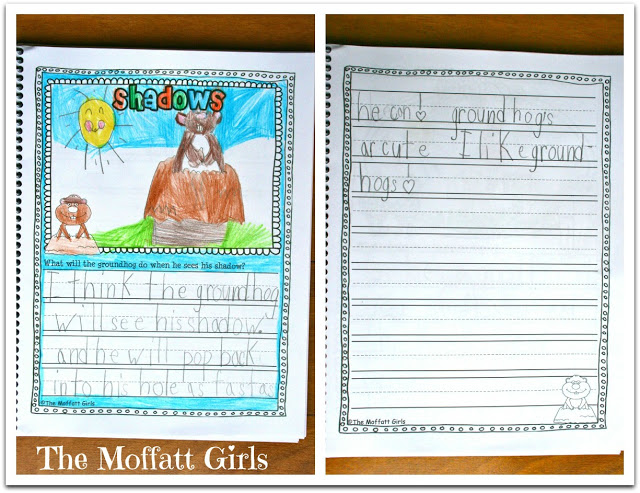 shadows
What will the groundhog do when he sees his shadow?
I think the groundhog
will see his shadow.
and he will pop back
into his hole as fast as
©The Moffatt Girls
he can!
groundhogs
ar cute I like ground-
hogs!
©The Moffatt Girls
The Moffatt Girls